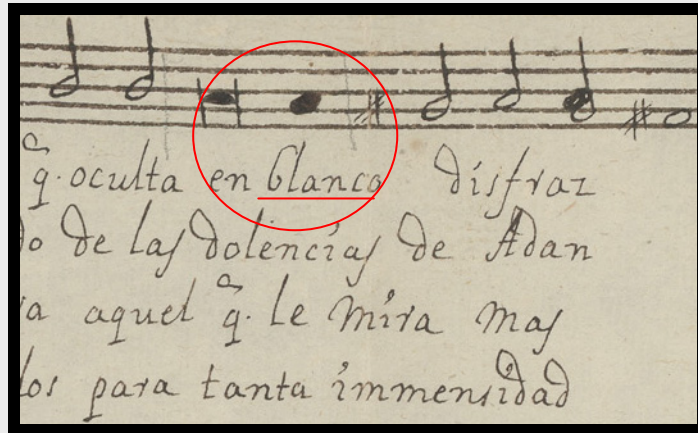 q̃. oculta en blanco disfraz
do de las dolencias de Adan
ra aquel q̃. le mira mas
los para tanta immensidad